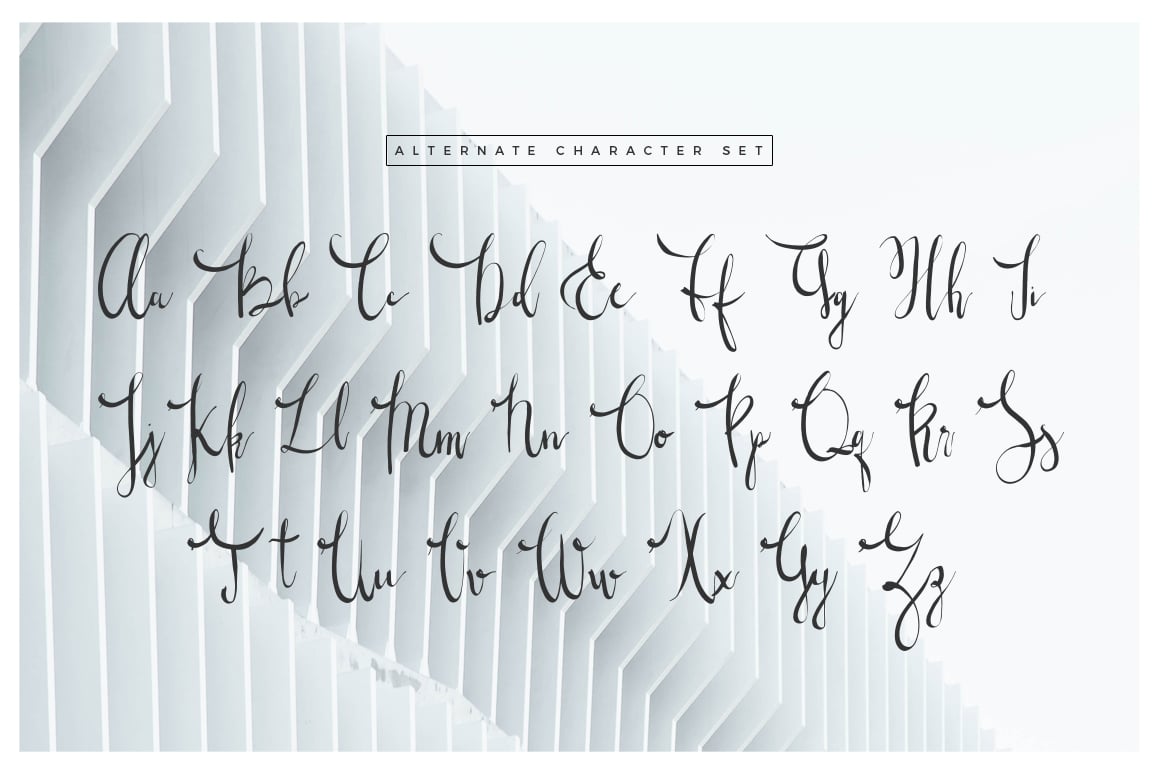 ALTERNATE CHARACTER SET
Aa Bb Cc Dd Ee Ff Gg Hh Ii
Jj Kk Ll Mm Nn Oo Pp Qq Rr Ss
Tt Uu Vv Ww Xx Yy Zz